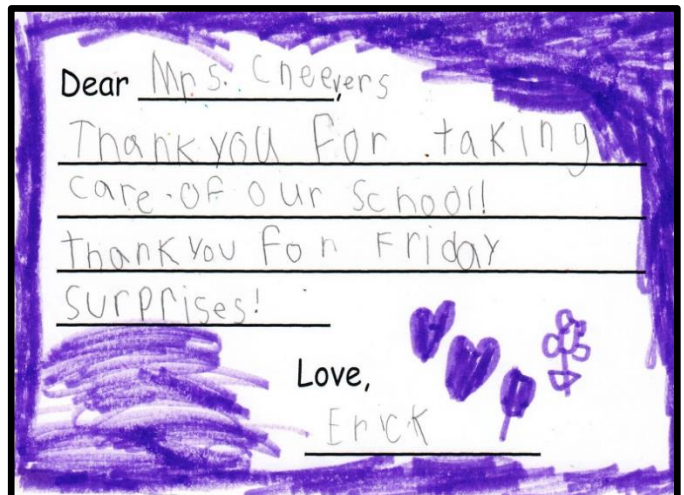 Dear Mrs. Cheevers,
Thank you For taking
care of our school!
thank you For Friday
surprises!
Love,
Erick